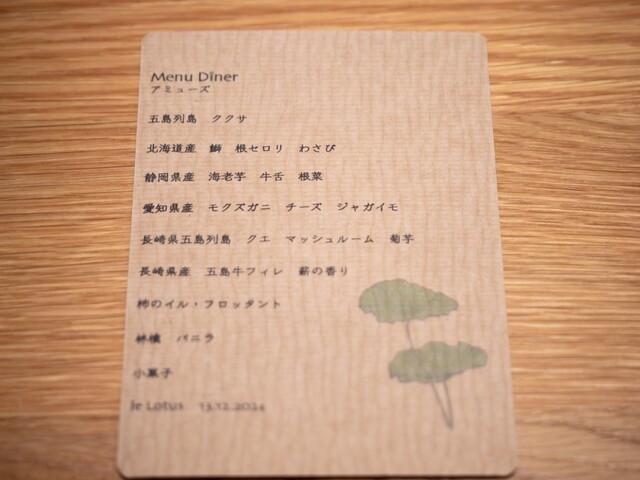 Menu Dîner
アミューズ
五島列島 ククサ
北海道産 鰤 根セロリ わさび
静岡県産 海老芋 牛舌 根菜
愛知県産 モクズガニ チーズ ジャガイモ
長崎県五島列島 クエ マッシュルーム 菊芋
長崎県産 五島牛フィレ 薪の香り
柿のイル・フロッタント
林檎 バニラ
小菓子
le Lotus 13.12.2024